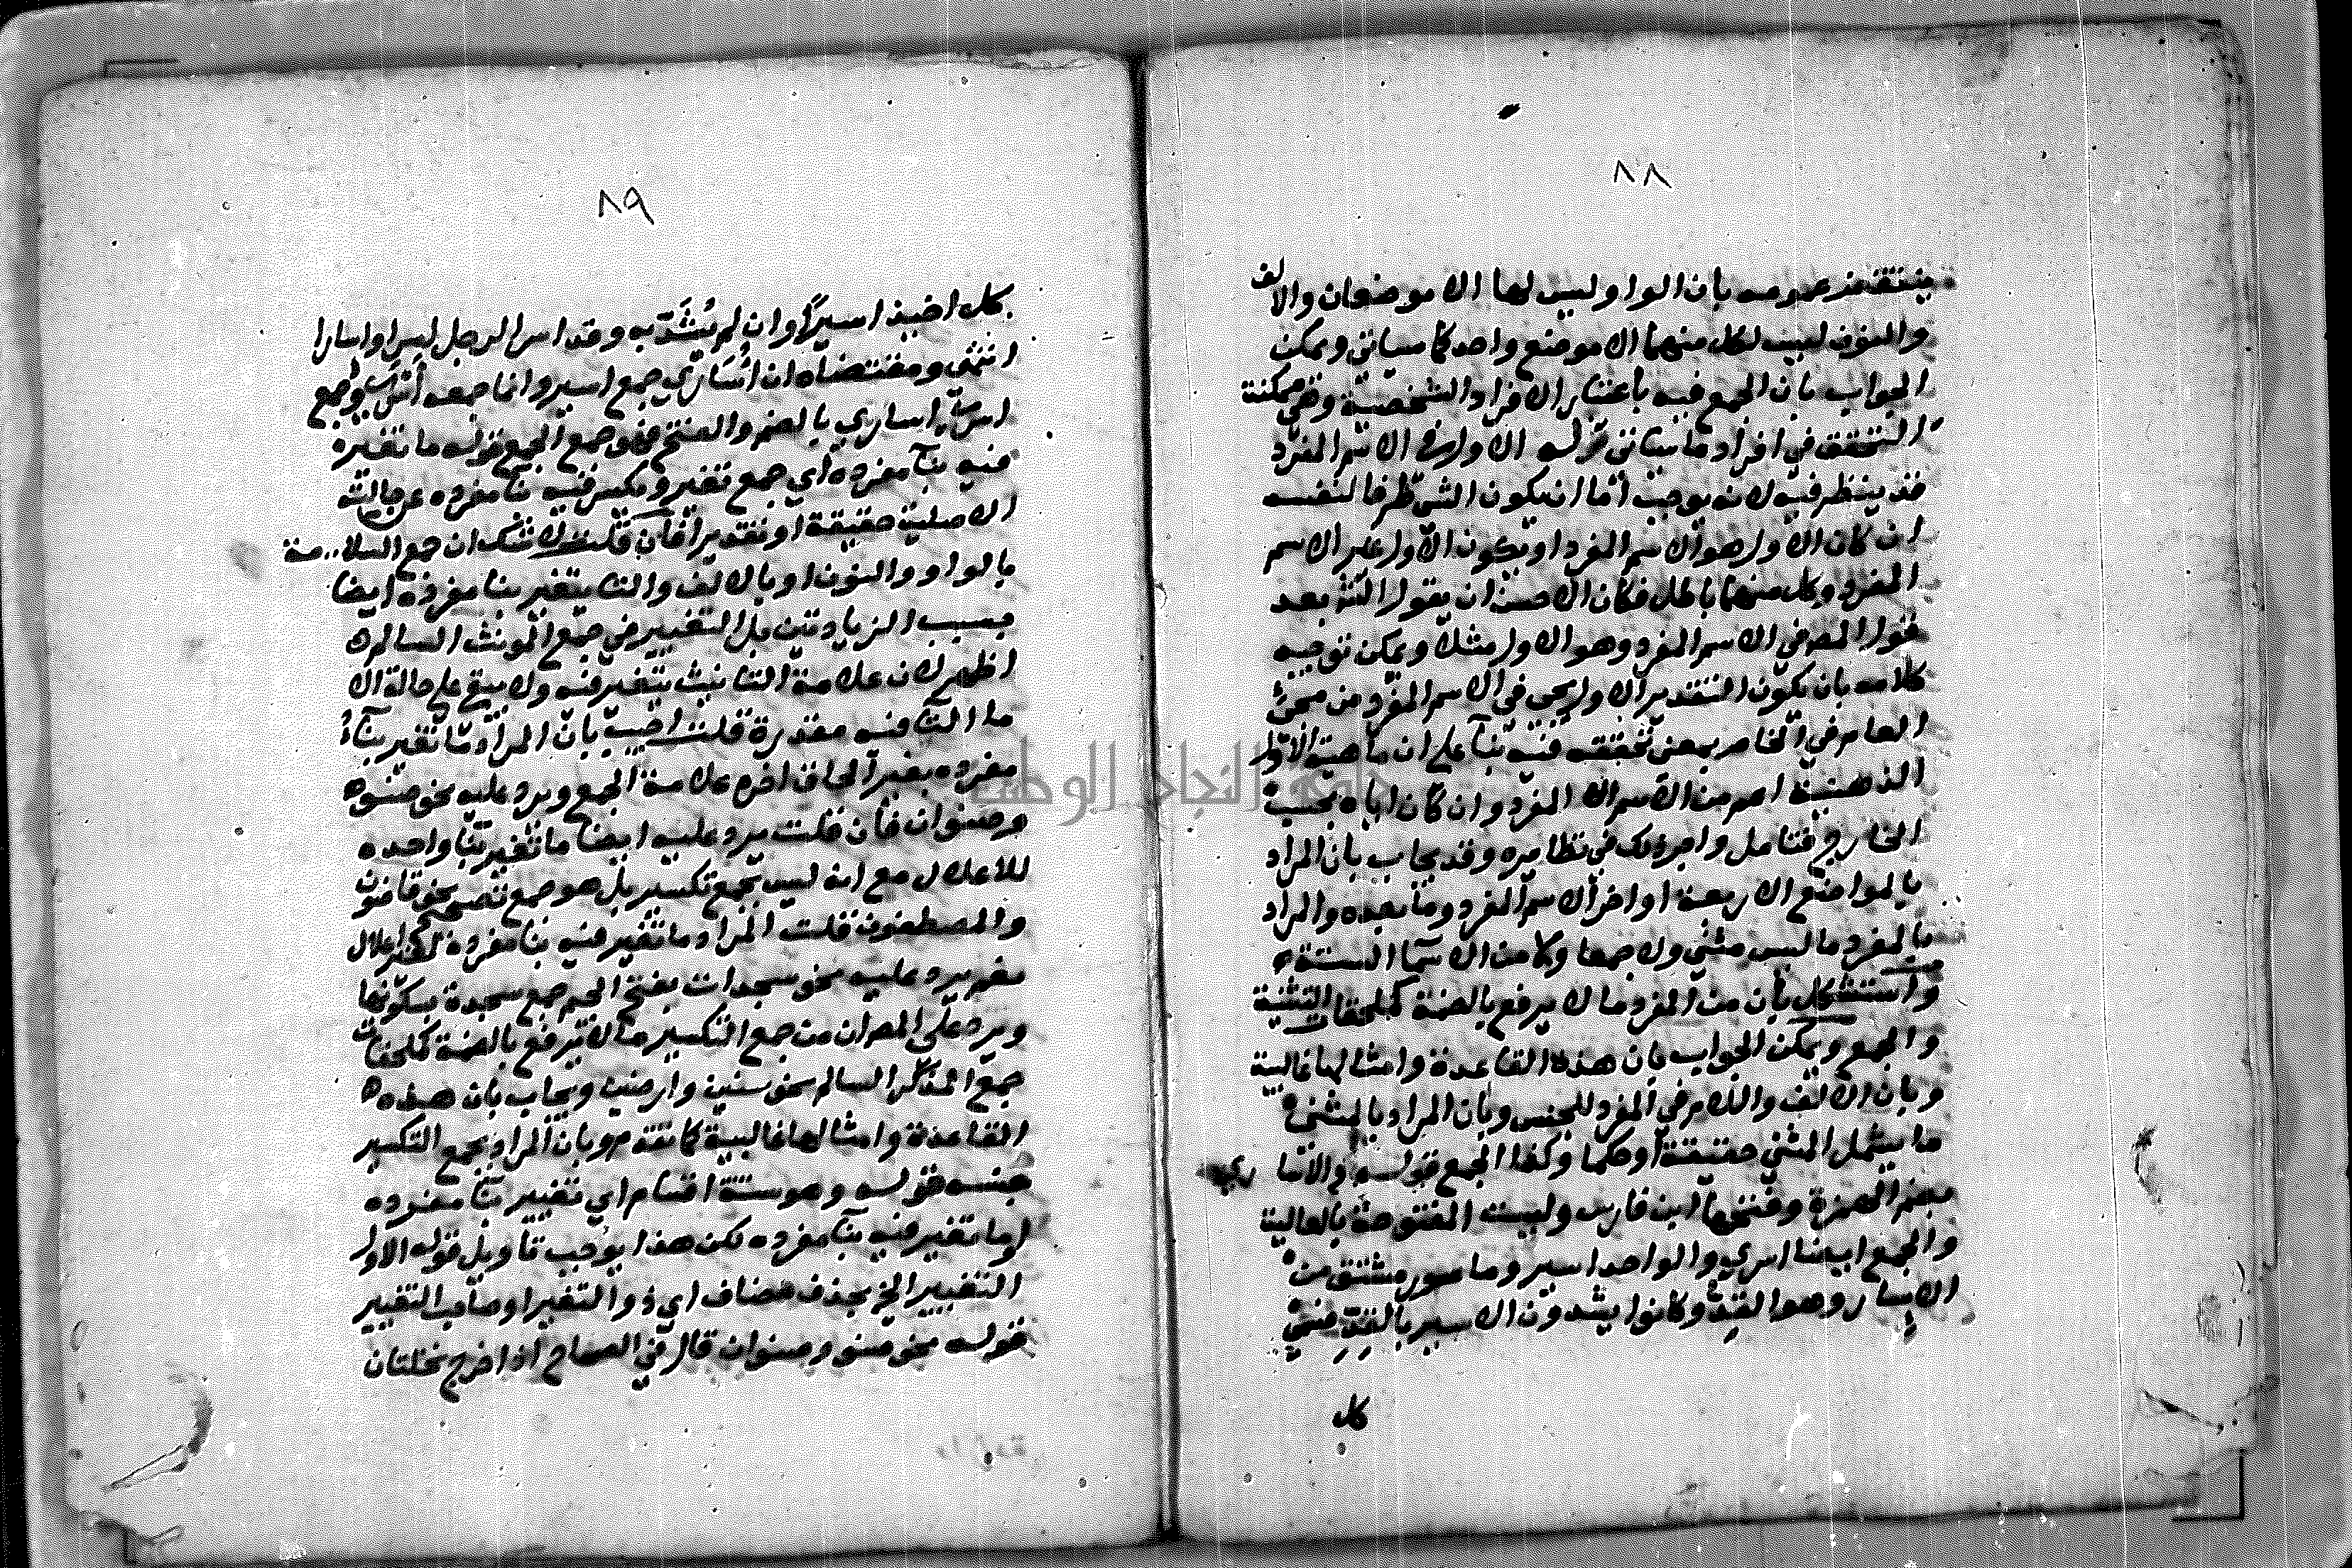 ٨٨
ينتقض عمومه بان الواو ليس لها الا موضعان والالف
والنون ليست لكل منهما الا موضع واحد كما سياتي ويمكن
الجواب بان الجمع فيه باعتبار الافراد الشخصية وهي ممكنة
التحقق في افراد ما سياتي قوله الاول في الاسم المفرد
قد ينظر فيه لانه يوجب اما ان يكون الشي ظرفا لنفسه
ان كان الاول هو الاسم المفرد او يكون الاول غير الاسم
المفرد وكل منهما باطل فكان الاحسن ان يقول الش بعد
قول المص في الاسم المفرد وهو الاول مثلا ويمكن توجيه
كلامه بان يكون التقدير الاول يجي في الاسم المفرد من مجئ
العام في الخاص بمعنى تحققه فيه بنا على ان ماهية الاول
الذهنية اعم من الاسم المفرد وان كان اياه بحسب
الخارج فتامل واجر ذلك في نظايره وقد يجاب بان المراد
بالمواضع الاربعة اواخر الاسم المفرد وما بعده والمراد
بالمفرد ما ليس مثنى ولا جمعا ولا من الاسما الستة
واستشكل بان من المفرد ما لا يرفع بالضمة كملحقات التثنية
والجمع ويمكن الجواب بان هذه القاعدة وامثالها غالبية
وبان الالف واللام في المفرد للجنس وبان المراد بالمثنى
ما يشمل المثنى حقيقة او حكما وكذا الجمع قوله والاسارى
بضم الهمزة وفتحها ابن فارس وليست المفتوحة بالعالية
والجمع ايضا اسرى والواحد اسير وماسور مشتق من
الاسار وهو القد وكانوا يشدون الاسير بالقد فسمي
كل
٨٩
كل اخيذ اسيرا وان لم يشد به وقد اسر الرجل اسرا واسارا
انتهى ومقتضاه ان اسارى جمع اسير وانما جمعه اسرى وجمع
اسرى اسارى بالضم والفتح فهو جمع الجمع قوله ما تغير
فيه بنا مفرده اي جمع تغير وتكسر فيه بنا مفرده عن حالته
الاصلية حقيقة او تقديرا فان قلت لا شك ان جمع السلامة
بالواو والنون او بالالف والتا يتغير بنا مفرده ايضا
بسبب الزيادتين بل التغيير في جمع المونث السالم
اظهر لان علامة التانيث يتغير فيه ولا يبقى على حالة الا
ما التا فيه مقدرة قلت اجيب بان المراد ما تغير بنآء
مفرده بغير الحاق اخره علامة الجمع ويرد عليه نحو صنو
وصنوان فان قلت يرد عليه ايضا ما تغير بنا واحده
للاعلال مع انه ليس بجمع تكسير بل هو جمع تصحيح نحو قاضون
والمصطفون قلت المراد ما تغير فيه بنا مفرده لغير اعلال
نعم يرد عليه نحو سجدات بفتح الجيم جمع سجدة بسكونها
ويرد على المص ان من جمع التكسير ما لا يرفع بالضمة كملحقات
جمع المذكر السالم نحو سنين وارضين ويجاب بان هذه
القاعدة وامثالها غالبية كما تقدم وبان المراد بجمع التكسير
جنسه قوله وهو ستة اقسام اي تغيير بنا مفرده
او ما تغير فيه بنا مفرده لكن هذا يوجب تاويل قوله الاول
التغيير الخ بحذف مضاف اي ذو التغير او صاحب التغيير
قوله نحو صنو وصنوان قال في الصحاح اذا خرج نخلتان